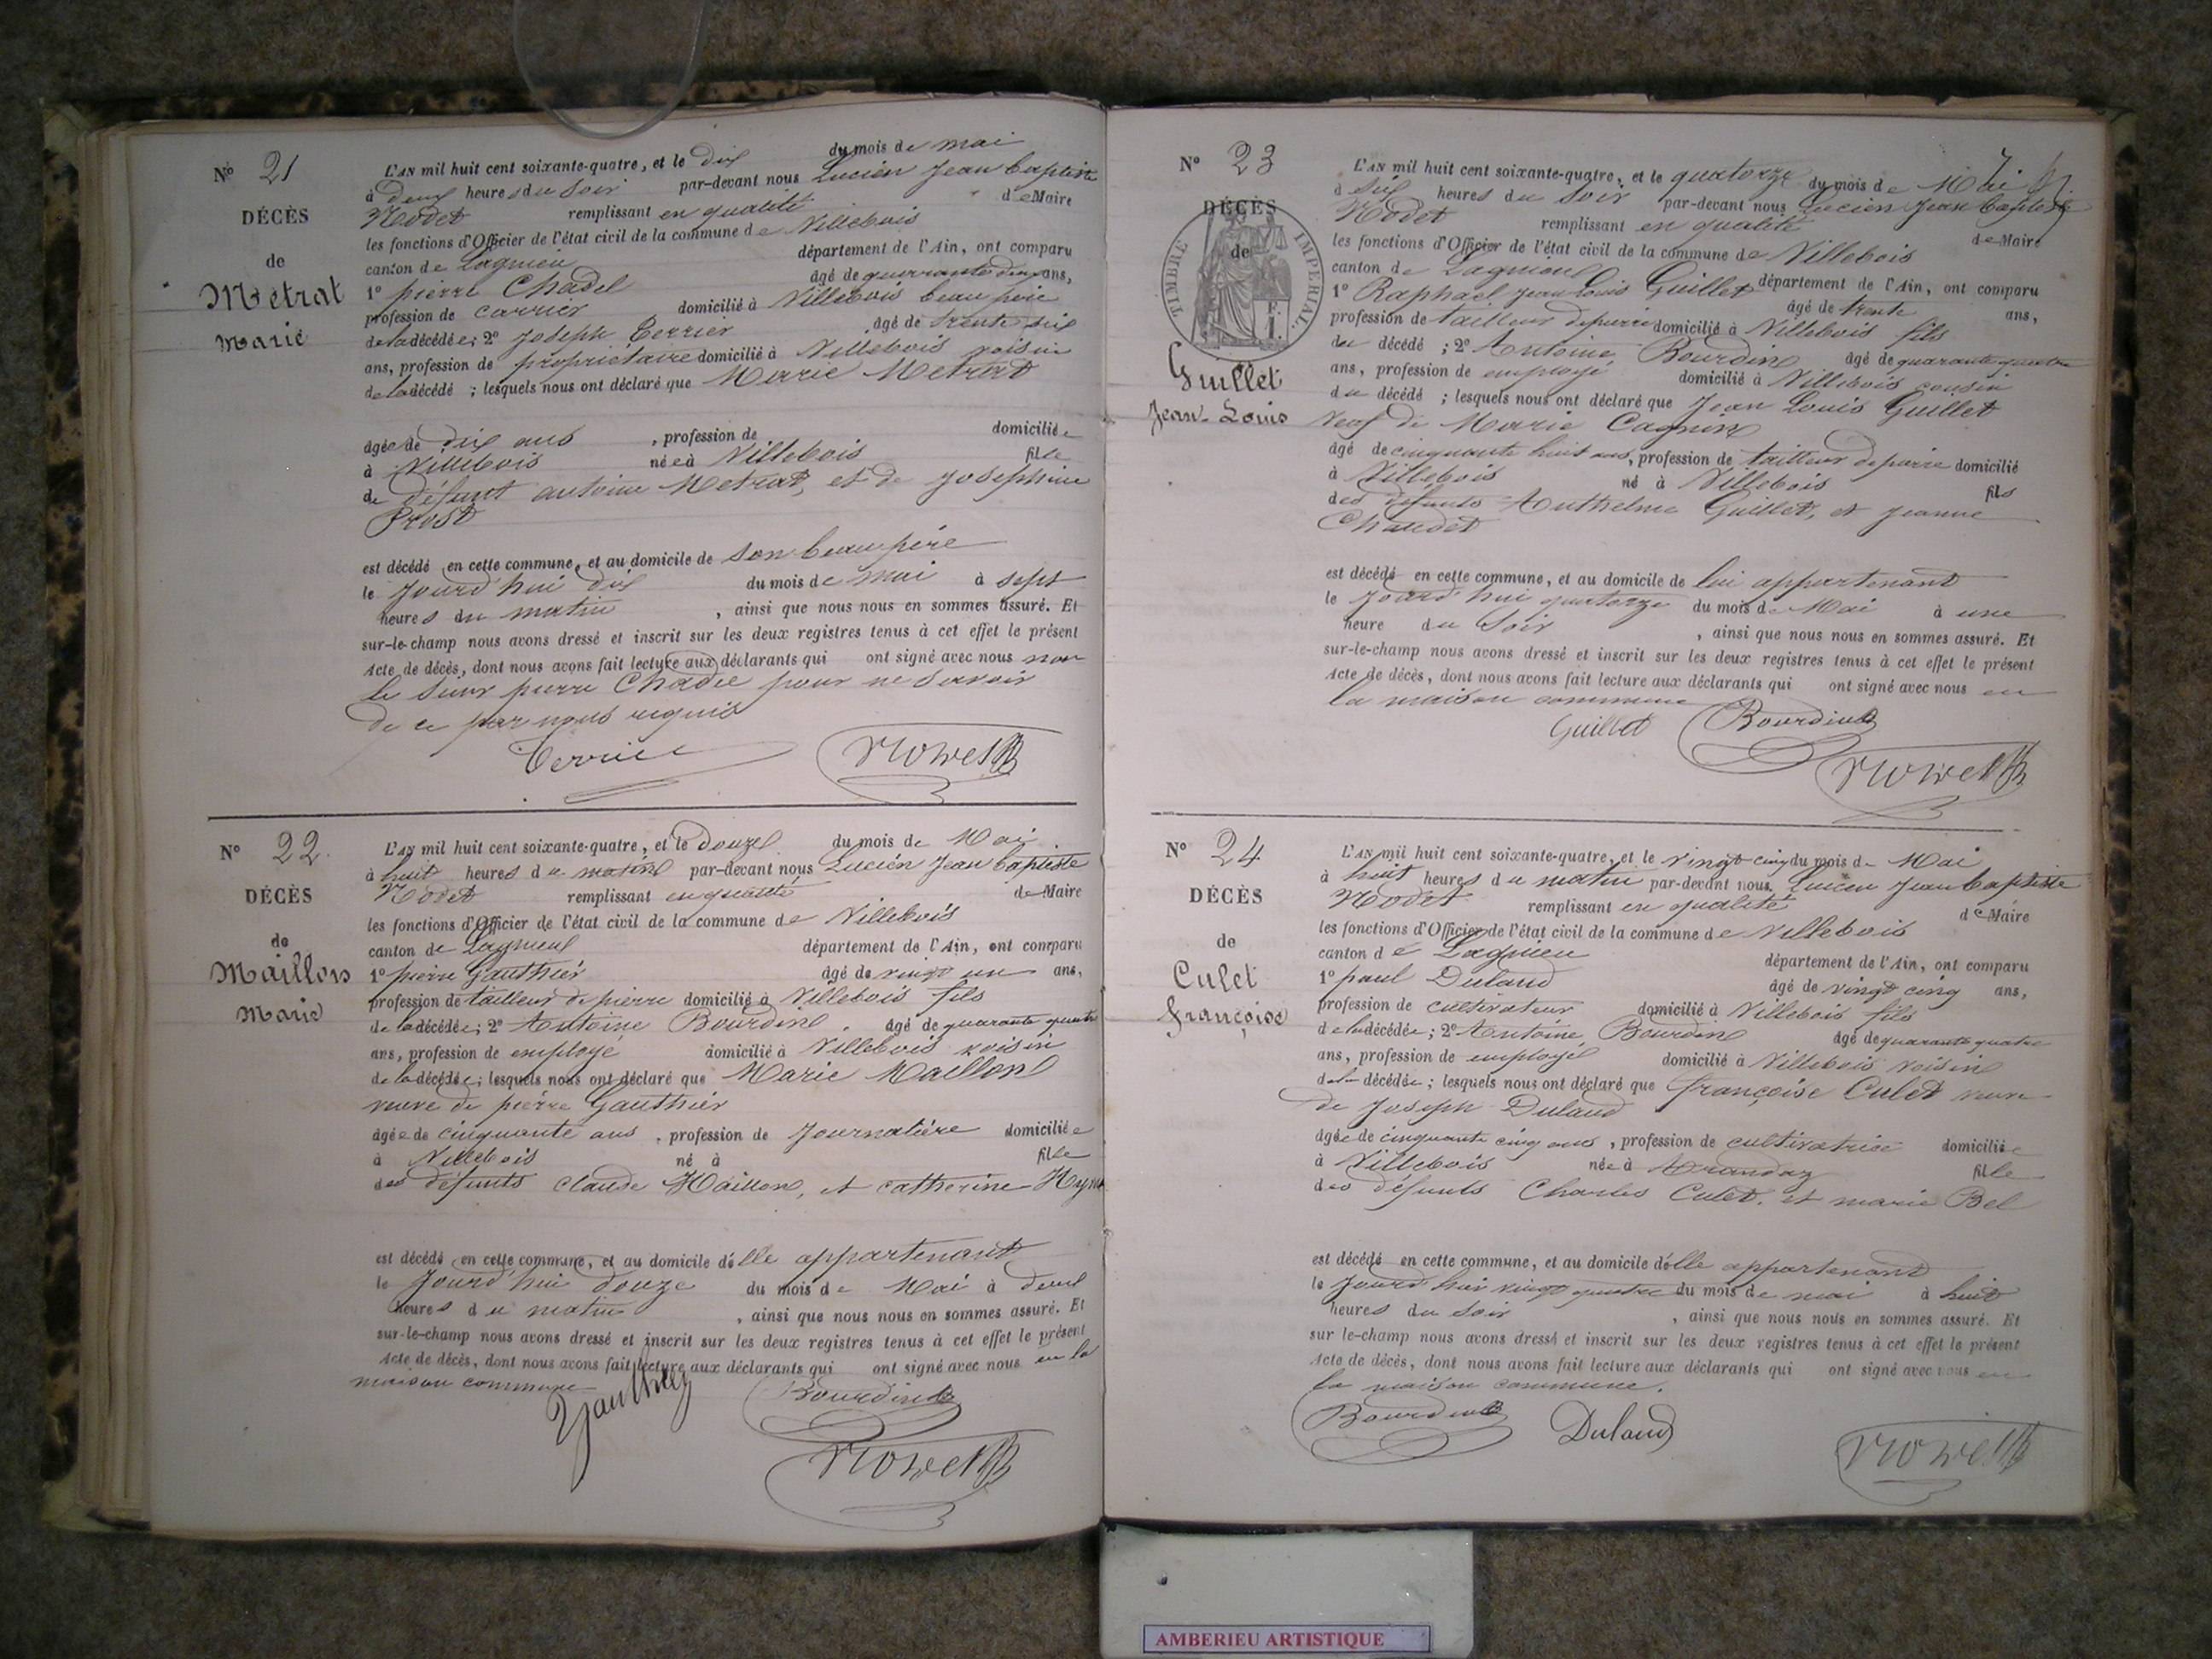 N° 21
DÉCÈS
de
Métrat
Marie
L'AN mil huit cent soixante-quatre, et le dix du mois de mai
à deux heures du soir par-devant nous Lucien Jean baptiste
Nodet remplissant en qualité de Maire
les fonctions d'Officier de l'état civil de la commune de Villebois
canton de Lagnieu département de l'Ain, ont comparu
1° pierre Chadel âgé de quarante deux ans,
profession de carrier domicilié à Villebois beau père
de la décédée; 2° Joseph Terrier âgé de trente six
ans, profession de propriétaire domicilié à Villebois voisin
de la décédé ; lesquels nous ont déclaré que Marie Metrat
âgée de dix ans , profession de domiciliée
à Villebois née à Villebois fille
de défunt antoine Metrat, et de Josephine
Prost
est décédé en cette commune, et au domicile de son beau père
le Jourd'hui dix du mois de mai à sept
heures du matin , ainsi que nous nous en sommes assuré. Et
sur-le-champ nous avons dressé et inscrit sur les deux registres tenus à cet effet le présent
Acte de décès, dont nous avons fait lecture aux déclarants qui ont signé avec nous non
le sieur pierre Chadel pour ne savoir
de ce par nous requis
Terrier Nodet
N° 22
DÉCÈS
de
Maillon
Marie
L'AN mil huit cent soixante-quatre, et le douze du mois de Mai
à huit heures du matin par-devant nous Lucien Jean baptiste
Nodet remplissant en qualité de Maire
les fonctions d'Officier de l'état civil de la commune de Villebois
canton de Lagnieu département de l'Ain, ont comparu
1° pierre Gauthier âgé de vingt un ans,
profession de tailleur de pierre domicilié à Villebois fils
de la décédée; 2° Antoine Bourdin âgé de quarante quatre
ans, profession de employé domicilié à Villebois voisin
de la décédée; lesquels nous ont déclaré que Marie Maillon
veuve de pierre Gauthier
âgée de cinquante ans , profession de Journalière domiciliée
à Villebois né à fille
des défunts Claude Maillon, et catherine
est décédé en cette commune, et au domicile d'elle appartenant
le Jourd'hui douze du mois de Mai à deux
heures du matin , ainsi que nous nous en sommes assuré. Et
sur-le-champ nous avons dressé et inscrit sur les deux registres tenus à cet effet le présent
Acte de décès, dont nous avons fait lecture aux déclarants qui ont signé avec nous en la
maison commune
Gauthier Bourdin
Nodet
N° 23
DÉCÈS
de
TIMBRE IMPERIAL
Guillet
Jean-Louis
L'AN mil huit cent soixante-quatre, et le quatorze du mois de Mai
à six heures du soir par-devant nous Lucien Jean baptiste
Nodet remplissant en qualité de Maire
les fonctions d'Officier de l'état civil de la commune de Villebois
canton de Lagnieu département de l'Ain, ont comparu
1° Raphael Jean Louis Guillet âgé de trente ans,
profession de tailleur de pierre domicilié à Villebois fils
du décédé ; 2° Antoine Bourdin âgé de quarante quatre
ans, profession de employé domicilié à Villebois cousin
du décédé ; lesquels nous ont déclaré que Jean Louis Guillet
Veuf de Marie Cagnin
âgé de cinquante huit ans, profession de tailleur de pierre domicilié
à Villebois né à Villebois fils
des défunts Anthelme Guillet, et Jeanne
Chaudet
est décédé en cette commune, et au domicile de lui appartenant
le Jourd'hui quatorze du mois de Mai à une
heure du Soir , ainsi que nous nous en sommes assuré. Et
sur-le-champ nous avons dressé et inscrit sur les deux registres tenus à cet effet le présent
Acte de décès, dont nous avons fait lecture aux déclarants qui ont signé avec nous en
la maison commune
Guillet Bourdin
Nodet
N° 24
DÉCÈS
de
Culet
françoise
L'AN mil huit cent soixante-quatre, et le vingt cinq du mois de Mai
à huit heures du matin par-devant nous Lucien Jean baptiste
Nodet remplissant en qualité de Maire
les fonctions d'Officier de l'état civil de la commune de Villebois
canton de Lagnieu département de l'Ain, ont comparu
1° paul Dulaud âgé de vingt cinq ans,
profession de cultivateur domicilié à Villebois fils
de la décédée; 2° Antoine Bourdin âgé de quarante quatre
ans, profession de employé domicilié à Villebois voisin
de la décédée; lesquels nous ont déclaré que françoise Culet veuve
de Joseph Dulaud
âgée de cinquante cinq ans , profession de cultivatrice domiciliée
à Villebois née à Arandaz fille
des défunts Charles Culet, et marie Bel
est décédé en cette commune, et au domicile d'elle appartenant
le Jourd'hui vingt quatre du mois de mai à huit
heures du soir , ainsi que nous nous en sommes assuré. Et
sur le-champ nous avons dressé et inscrit sur les deux registres tenus à cet effet le présent
Acte de décès, dont nous avons fait lecture aux déclarants qui ont signé avec nous en
la maison commune.
Bourdin Dulaud
Nodet
AMBERIEU ARTISTIQUE